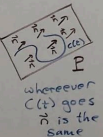 n⃗ n⃗ n⃗
n⃗ n⃗ C(t)
n⃗ P
whereever
C(t) goes
n⃗ is the
same